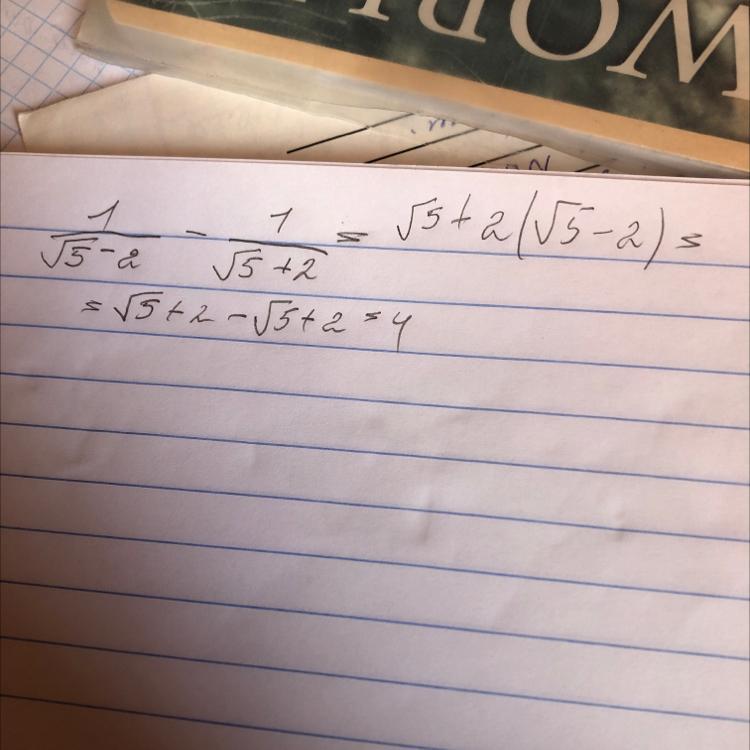 WORL
1/(√5-2) - 1/(√5+2) = √5+2(√5-2) =
= √5+2-√5+2 = 4